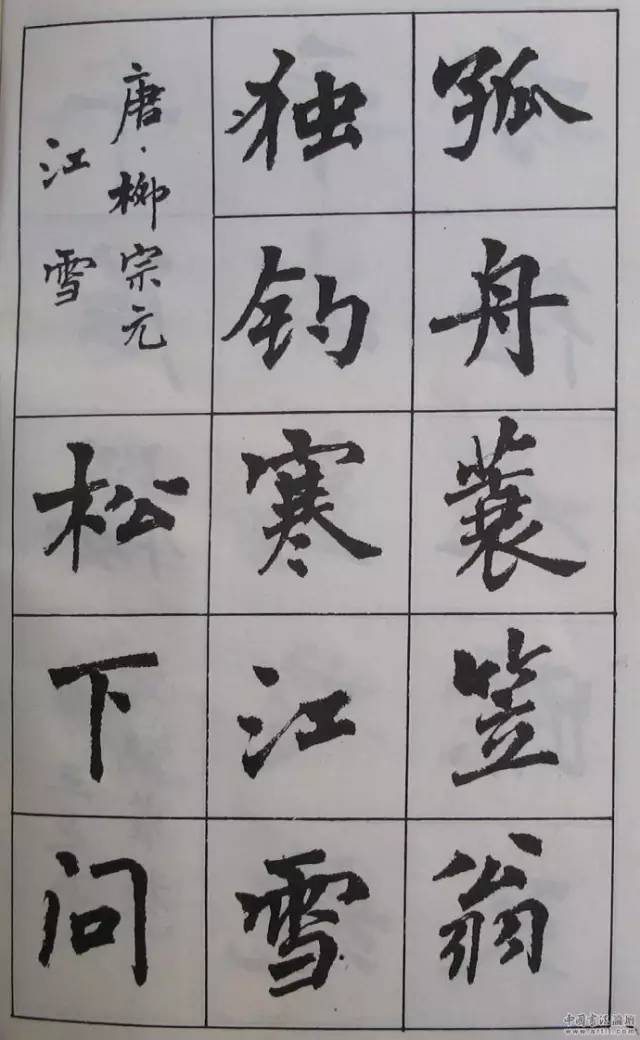 孤舟蓑笠翁
独钓寒江雪
唐·柳宗元
江雪
松下问
中国书法论坛